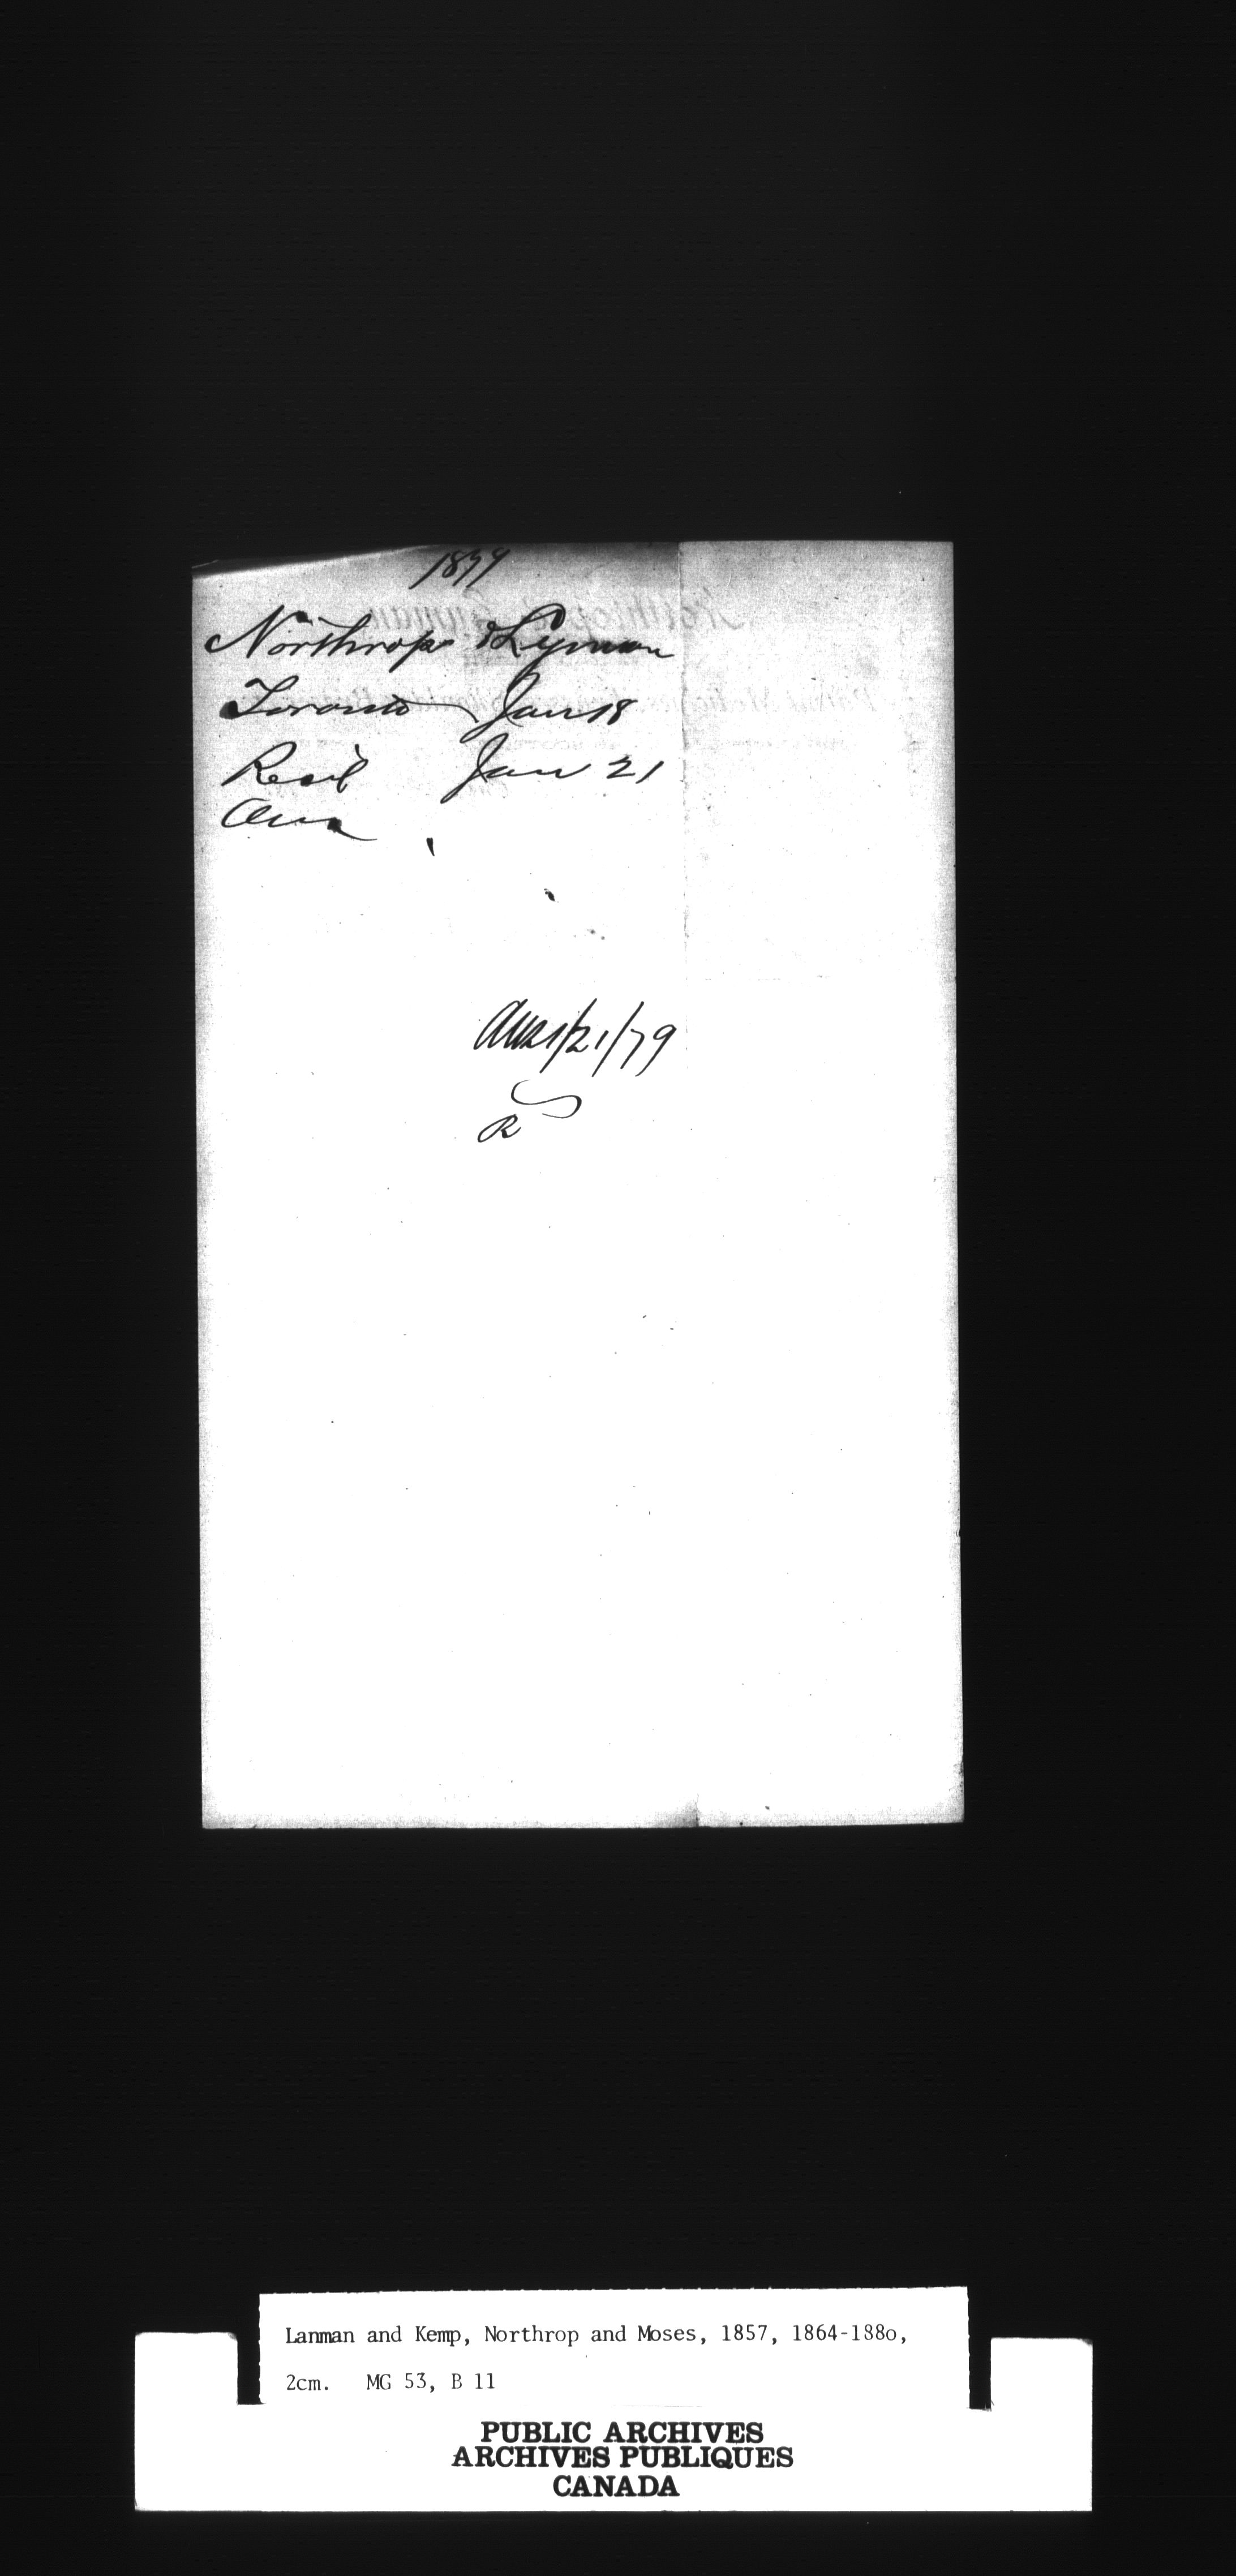 1879
Northrop & Lyman
Toronto Jan 18
Recd Jan 21
Ans
Ans 1/21/79
R
Lanman and Kemp, Northrop and Moses, 1857, 1864-188o,
2cm. MG 53, B 11
PUBLIC ARCHIVES
ARCHIVES PUBLIQUES
CANADA